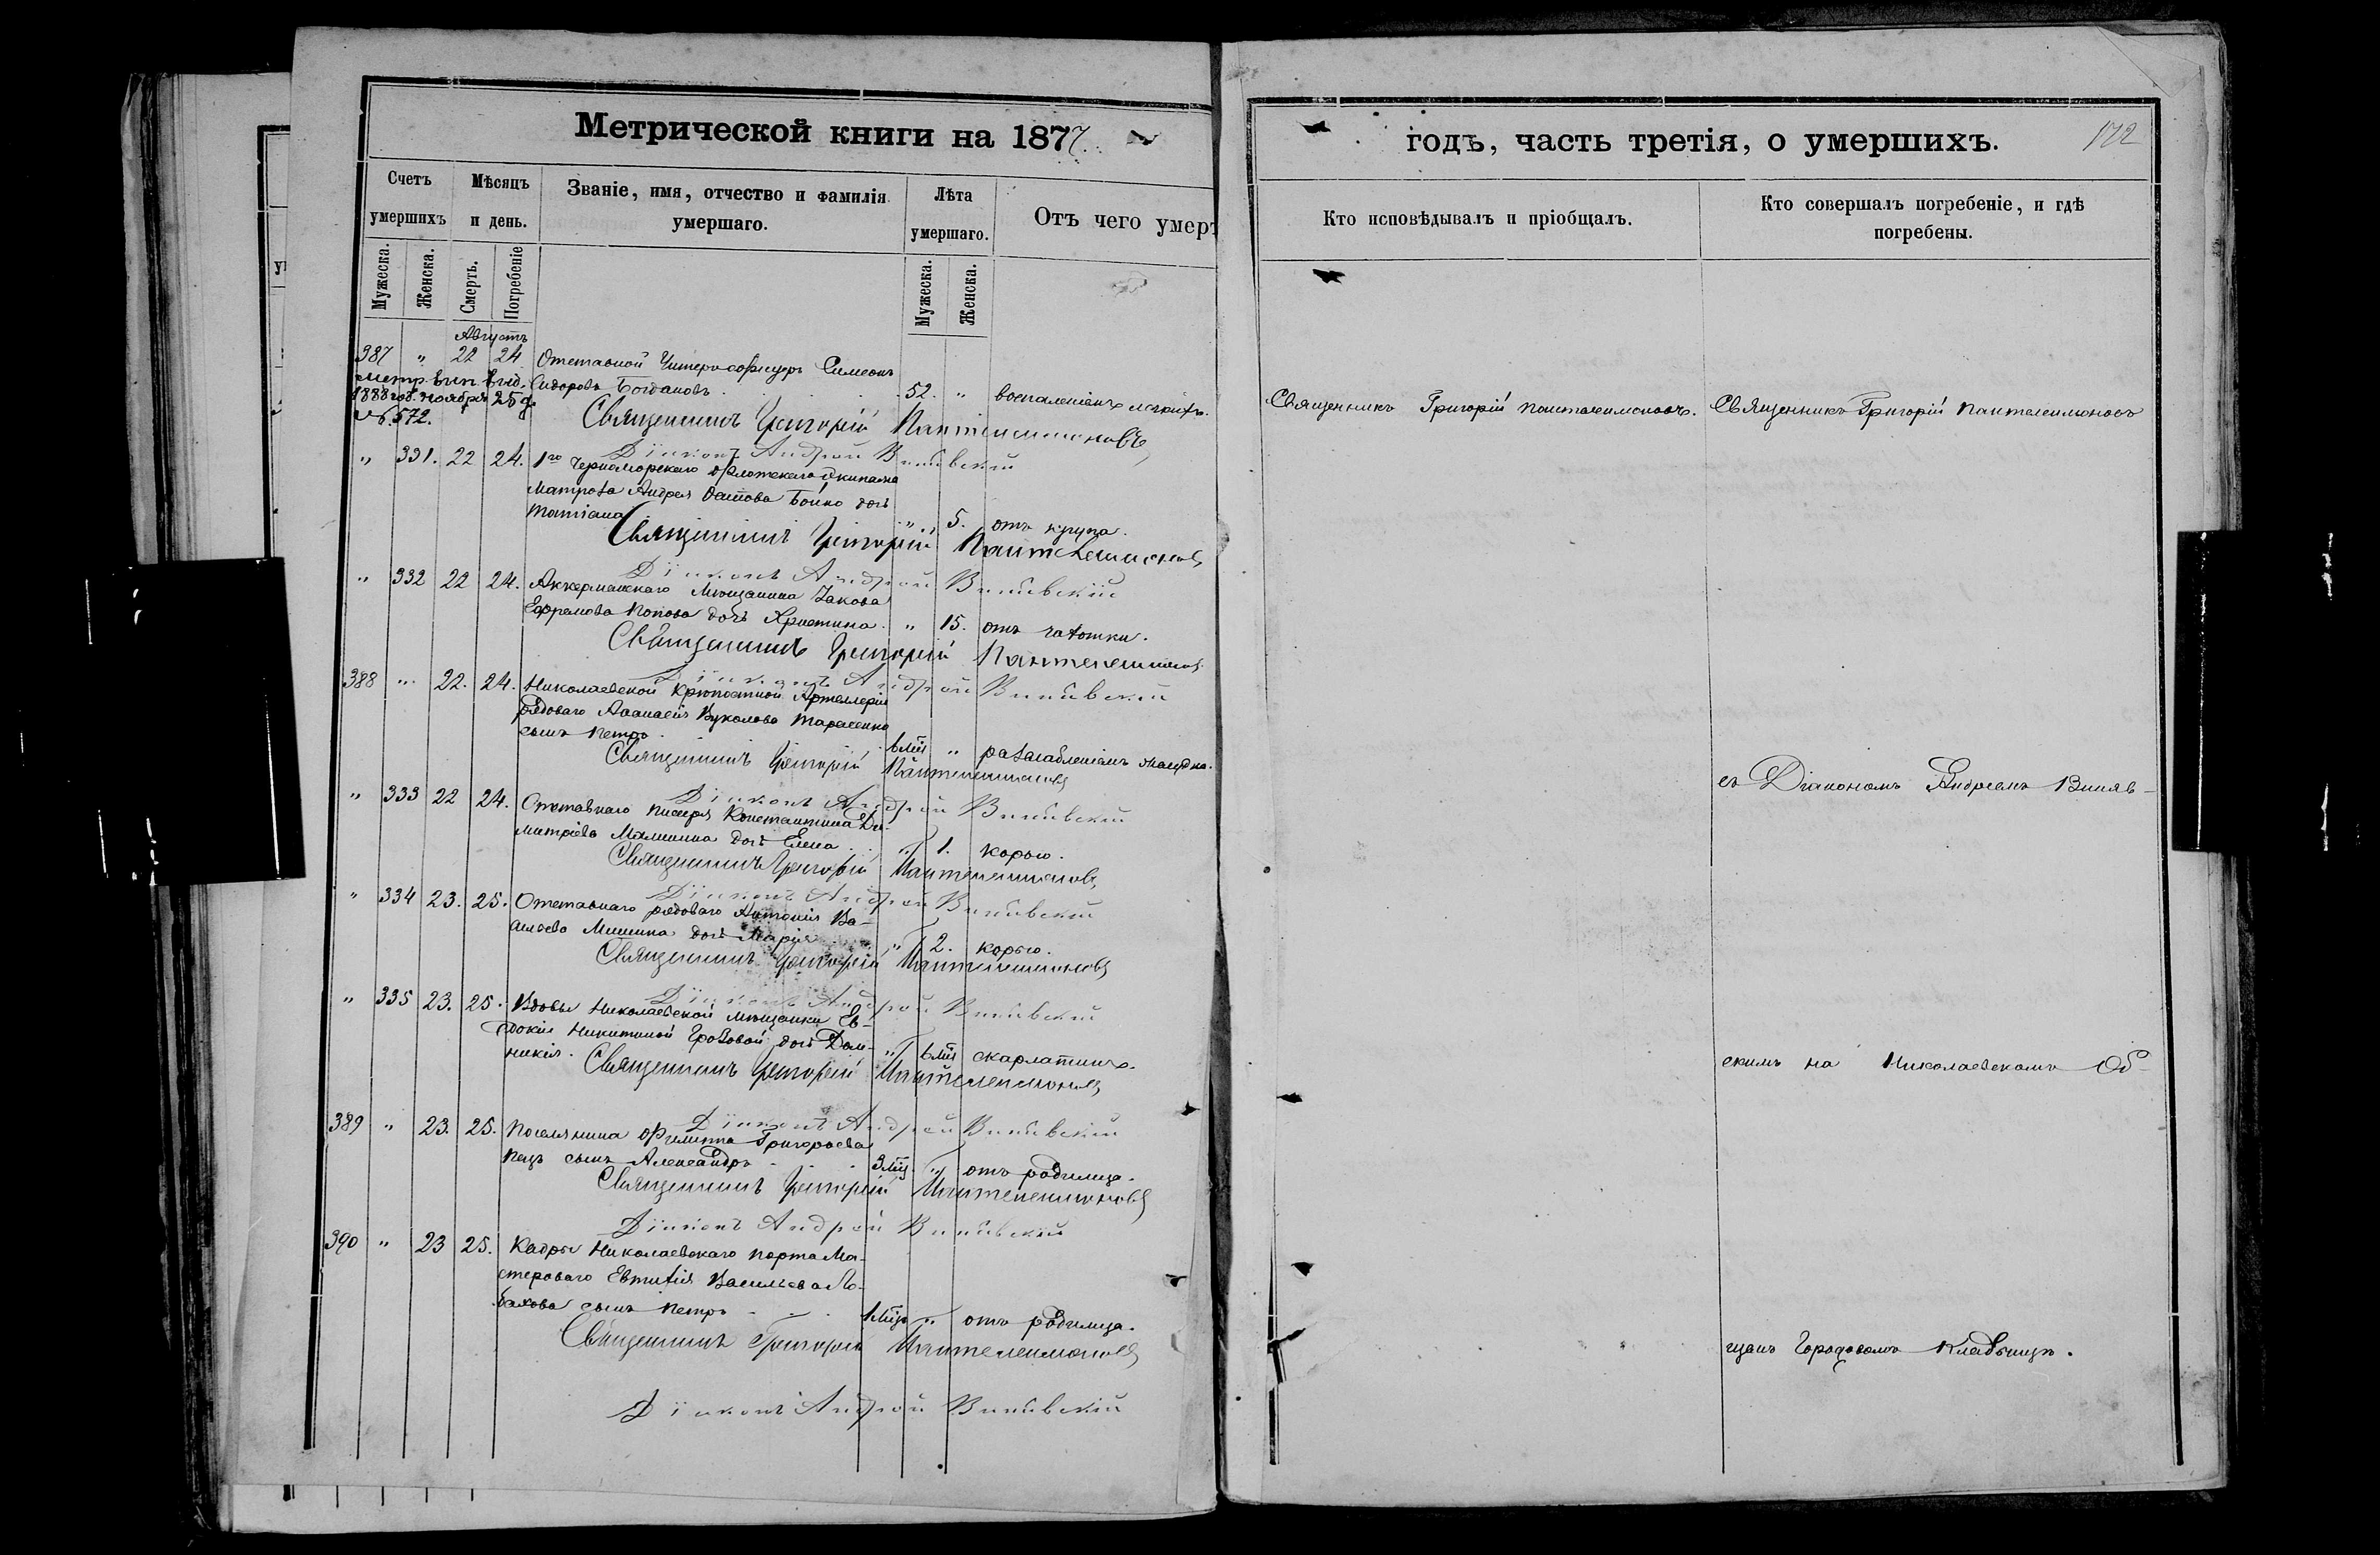 Метрической книги на 1877
годъ, часть третія, о умершихъ.
172
Счетъ умершихъ
Мѣсяцъ и день.
Званіе, имя, отчество и фамилія умершаго.
Лѣта умершаго.
Отъ чего умеръ
Кто исповѣдывалъ и пріобщалъ.
Кто совершалъ погребеніе, и гдѣ погребены.
Мужеска.
Женска.
Смерть.
Погребеніе
Мужеска.
Женска.
Августъ
387 " 22 24 Отставной Унтеръ-офицеръ Симеонъ
Сидоровъ Богдановъ . 52. " воспаленіемъ легкихъ.
Метр. вып. выд.
1888 год. ноября 25 д.
№ 572.
Священникъ Григорій Пантелеимоновъ
Діаконъ Андрей
" 331. 22 24. 1го Черноморскаго флотскаго Экипажа
Матроса Андрея Осипова Бойко дочь
Татіана " 5. отъ крупа.
Священникъ Григорій Пантелеимоновъ
Діаконъ Андрей
" 332 22 24. Аккерманскаго Мѣщанина Іакова
Ефремова Попова дочь Христина. " 15. отъ чахотки.
Священникъ Григорій Пантелеимоновъ
Діаконъ Андрей
388 " 22. 24. Николаевской Крѣпостной Артиллеріи
рядоваго Аѳанасія Вуколова Тарасенко
сынъ Петръ. 6 мцъ " разслабленіемъ желудка.
Священникъ Григорій Пантелеимоновъ
Діаконъ Андрей
" 333 22 24. Отставнаго писаря Константина Ди-
митріева Малинина дочь Елена " 1. корью.
Священникъ Григорій Пантелеимоновъ
Діаконъ Андрей
" 334 23. 25. Отставнаго рядоваго Антонія Ва-
сильева Мишина дочь Марія " 2. корью.
Священникъ Григорій Пантелеимоновъ
Діаконъ Андрей
" 335 23. 25. Вдовы Николаевской мѣщанки Ев-
докіи Никитиной Грозовой дочь Дом-
никія. " 6 мцъ скарлатиною.
Священникъ Григорій Пантелеимоновъ
Діаконъ Андрей
389 " 23. 25. Поселянина Филиппа Григорьева
сынъ Александръ 3 мцъ. " отъ родимца.
Священникъ Григорій Пантелеимоновъ
Діаконъ Андрей
390 " 23 25. Кадры Николаевскаго порта Ма-
стероваго Евтихія Васильева
сынъ Петръ 1 мцъ " отъ родимца.
Священникъ Григорій Пантелеимоновъ
Діаконъ Андрей
Священникъ Григорій Пантелеимоновъ.
Священникъ Григорій Пантелеимоновъ
съ Діакономъ Андреемъ Виняв-
скимъ на Николаевскомъ Об-
щемъ Городовомъ Кладбищѣ.